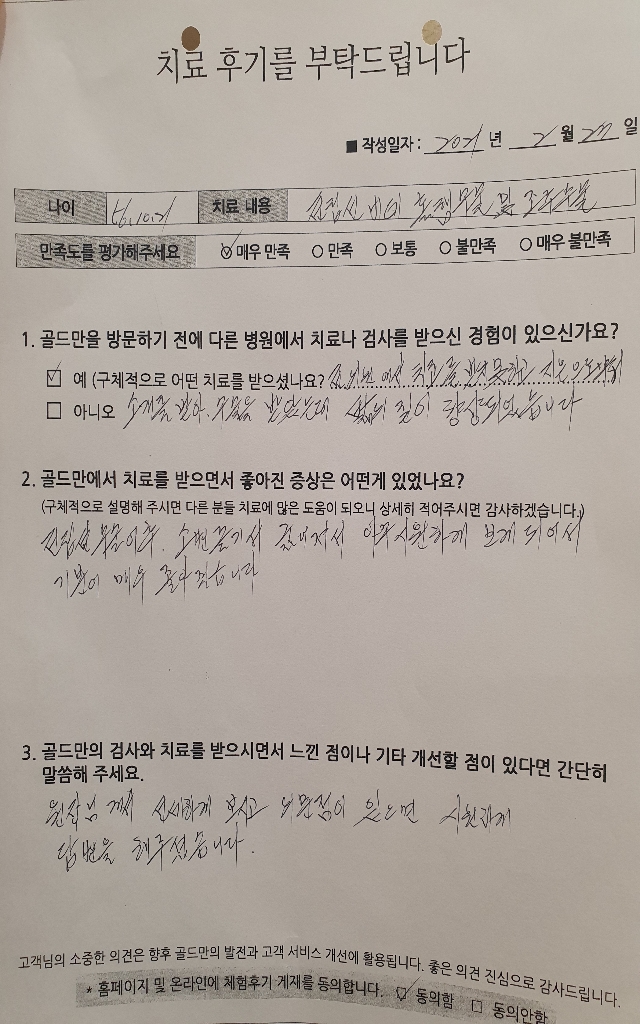 치료 후기를 부탁드립니다
■ 작성일자 : 2021 년 2 월 27 일
나이 치료 내용 전립선 비대 및
만족도를 평가해주세요 ☑ 매우 만족 ○ 만족 ○ 보통 ○ 불만족 ○ 매우 불만족
1. 골드만을 방문하기 전에 다른 병원에서 치료나 검사를 받으신 경험이 있으신가요?
☑ 예 (구체적으로 어떤 치료를 받으셨나요? 에서 치료를 받지 못하고 지인으로부터
☐ 아니오 소개를 받아 수술을 받았는데 삶의 질이 향상되었습니다
2. 골드만에서 치료를 받으면서 좋아진 증상은 어떤게 있었나요?
(구체적으로 설명해 주시면 다른 분들 치료에 많은 도움이 되오니 상세히 적어주시면 감사하겠습니다.)
전립선 수술이후. 소변줄기가 굵어져서 아주 시원하게 보게 되어서
기분이 매우 좋아졌습니다
3. 골드만의 검사와 치료를 받으시면서 느낀 점이나 기타 개선할 점이 있다면 간단히
말씀해 주세요.
원장님께서 친절하게 보시고 의문점이 있으면 시원하게
답변을 해주셨습니다.
고객님의 소중한 의견은 향후 골드만의 발전과 고객 서비스 개선에 활용됩니다. 좋은 의견 진심으로 감사드립니다.
* 홈페이지 및 온라인에 체험후기 게재를 동의합니다. ☑ 동의함 ☐ 동의안함